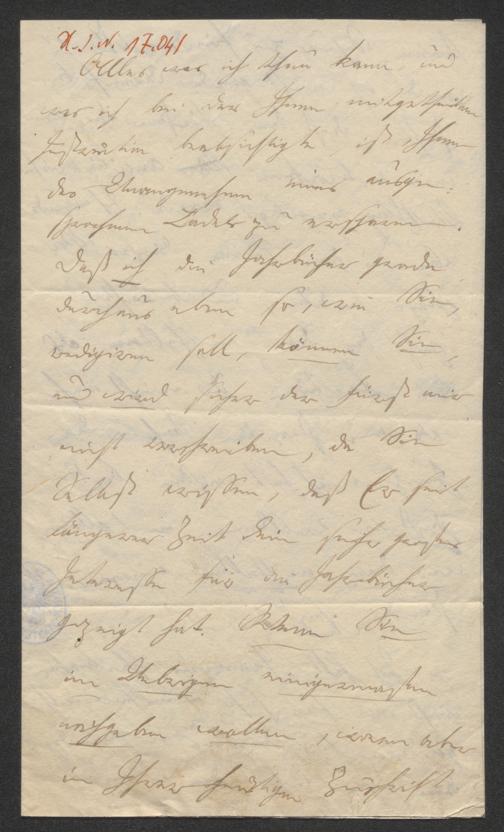 H.I.N. 17.041
Alles was ich thun kann, und
was ich bei der Ihnen mitgetheilten
Instruktion beabsichtigte, ist Ihnen
das Unangenehme eines ausge-
sprochenen Tadels zu ersparen.
Daß ich die Jahrbücher gerade
durchaus eben so, wie Sie,
redigiren soll, können Sie,
und wird sicher der Fürst mir
nicht vorschreiben, da Sie
Selbst wissen, daß Er seit
längerer Zeit kein sehr großes
Interesse für die Jahrbücher
gezeigt hat. Wenn Sie
im Uebrigen einigermaßen
nachgeben wollen, wenn aber
in Ihrer heutigen Zuschrift